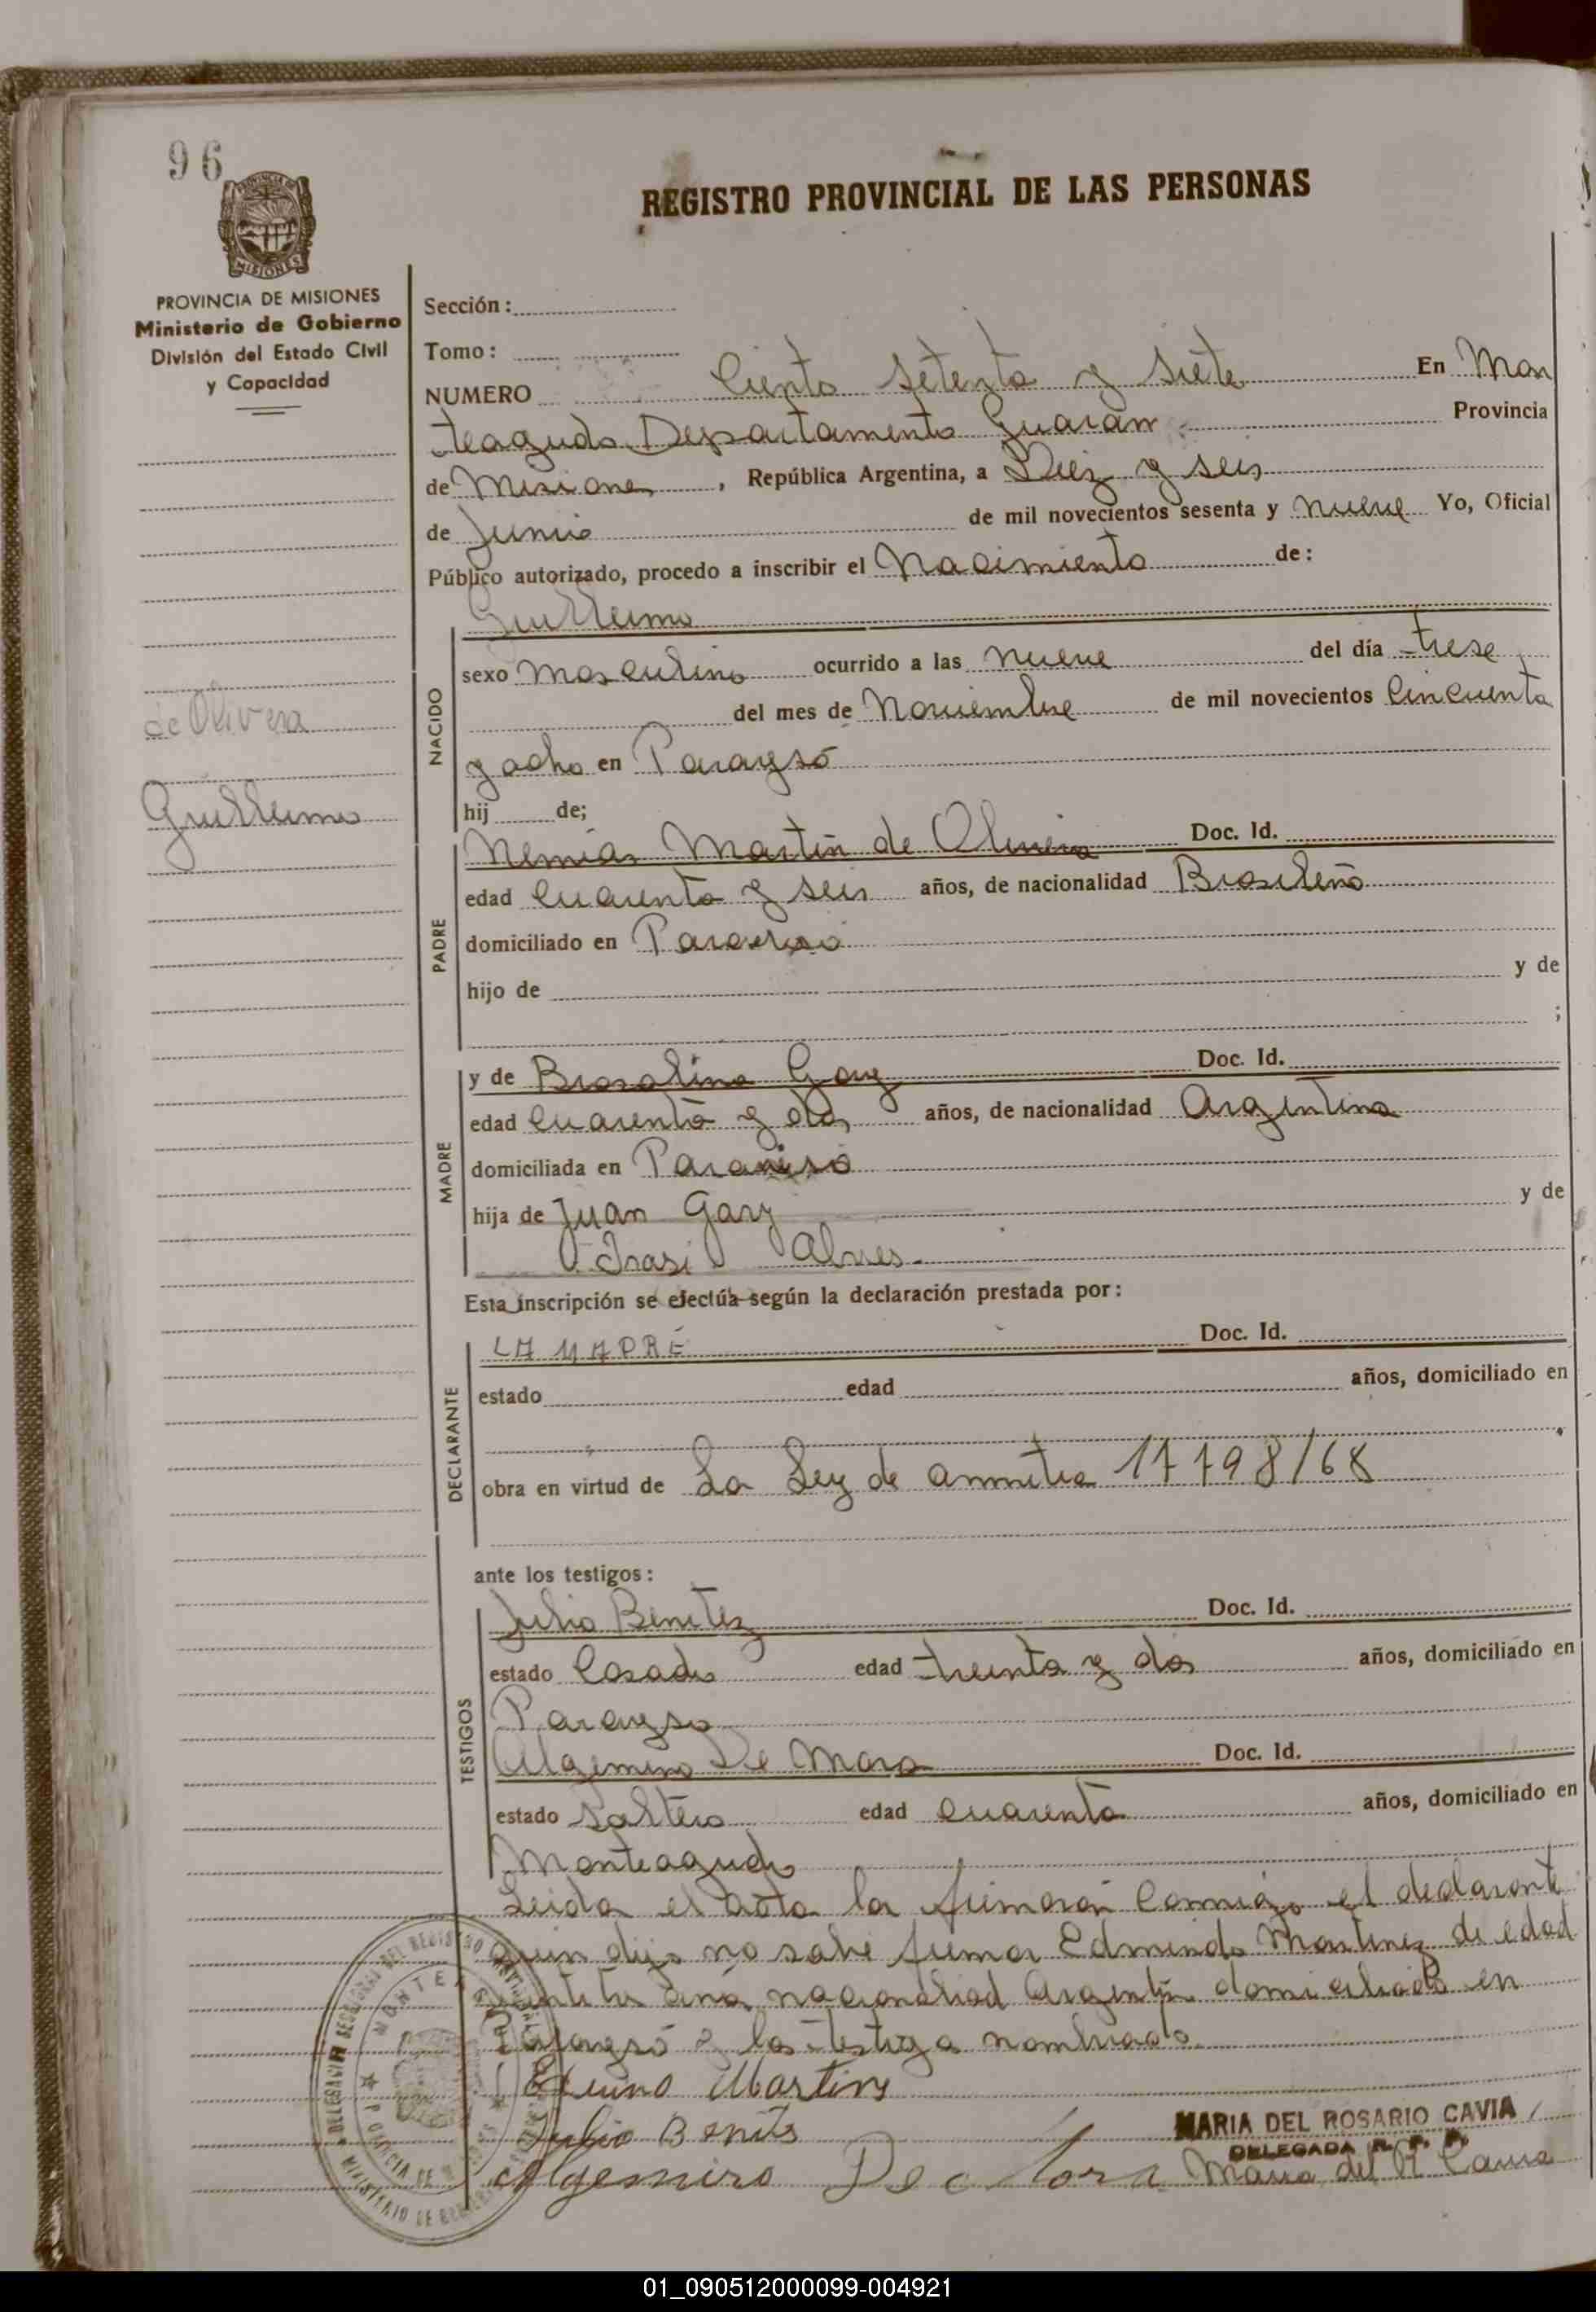 96
REGISTRO PROVINCIAL DE LAS PERSONAS
PROVINCIA DE MISIONES
Ministerio de Gobierno
División del Estado Civil
y Capacidad
Sección:
Tomo:
NUMERO Ciento setenta y siete En Mon
teagudo Departamento Guaraní Provincia
de Misiones, República Argentina, a Diez y seis
de Junio de mil novecientos sesenta y nueve Yo, Oficial
Público autorizado, procedo a inscribir el Nacimiento de:
de Olivera
Guillermo
NACIDO
Guillermo
sexo Masculino ocurrido a las nueve del día trese
del mes de Noviembre de mil novecientos Cincuenta
y ocho en Parayso
hij de;
PADRE
Nemias Martin de Olivera Doc. Id.
edad Cuarenta y seis años, de nacionalidad Brasileño
domiciliado en
hijo de y de
;
MADRE
y de Brasalina Gary Doc. Id.
edad Cuarenta y dos años, de nacionalidad Argentina
domiciliada en Paraniso
hija de Juan Gary y de
Irasi Alves.
Esta inscripción se efectúa según la declaración prestada por:
DECLARANTE
LA MADRE Doc. Id.
estado edad años, domiciliado en
obra en virtud de La Ley de 17798/68
ante los testigos:
TESTIGOS
Julio Benitez Doc. Id.
estado Casado edad treinta y dos años, domiciliado en
Parayso
Algemiro De Mora Doc. Id.
estado soltero edad cuarenta años, domiciliado en
Monteagudo
Leida el acta la firmaran Conmigo el declarante
quin dijo no sabe firmar Edmindo Martinez de edad
nacionalidad Argentin domiciliado en
y los testigos nombrado.
Martins
Julio Benits
Algemiro De Mora
MARIA DEL ROSARIO CAVIA
DELEGADA R. P. P.
Maria del R Cavia
01_090512000099-004921